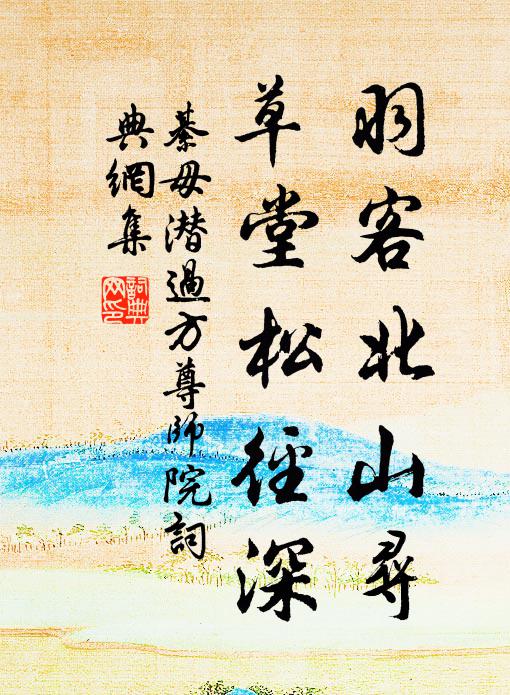 羽客北山尋
草堂松徑深
綦毋潛過方尊師院詞
典網集
詞典
网印